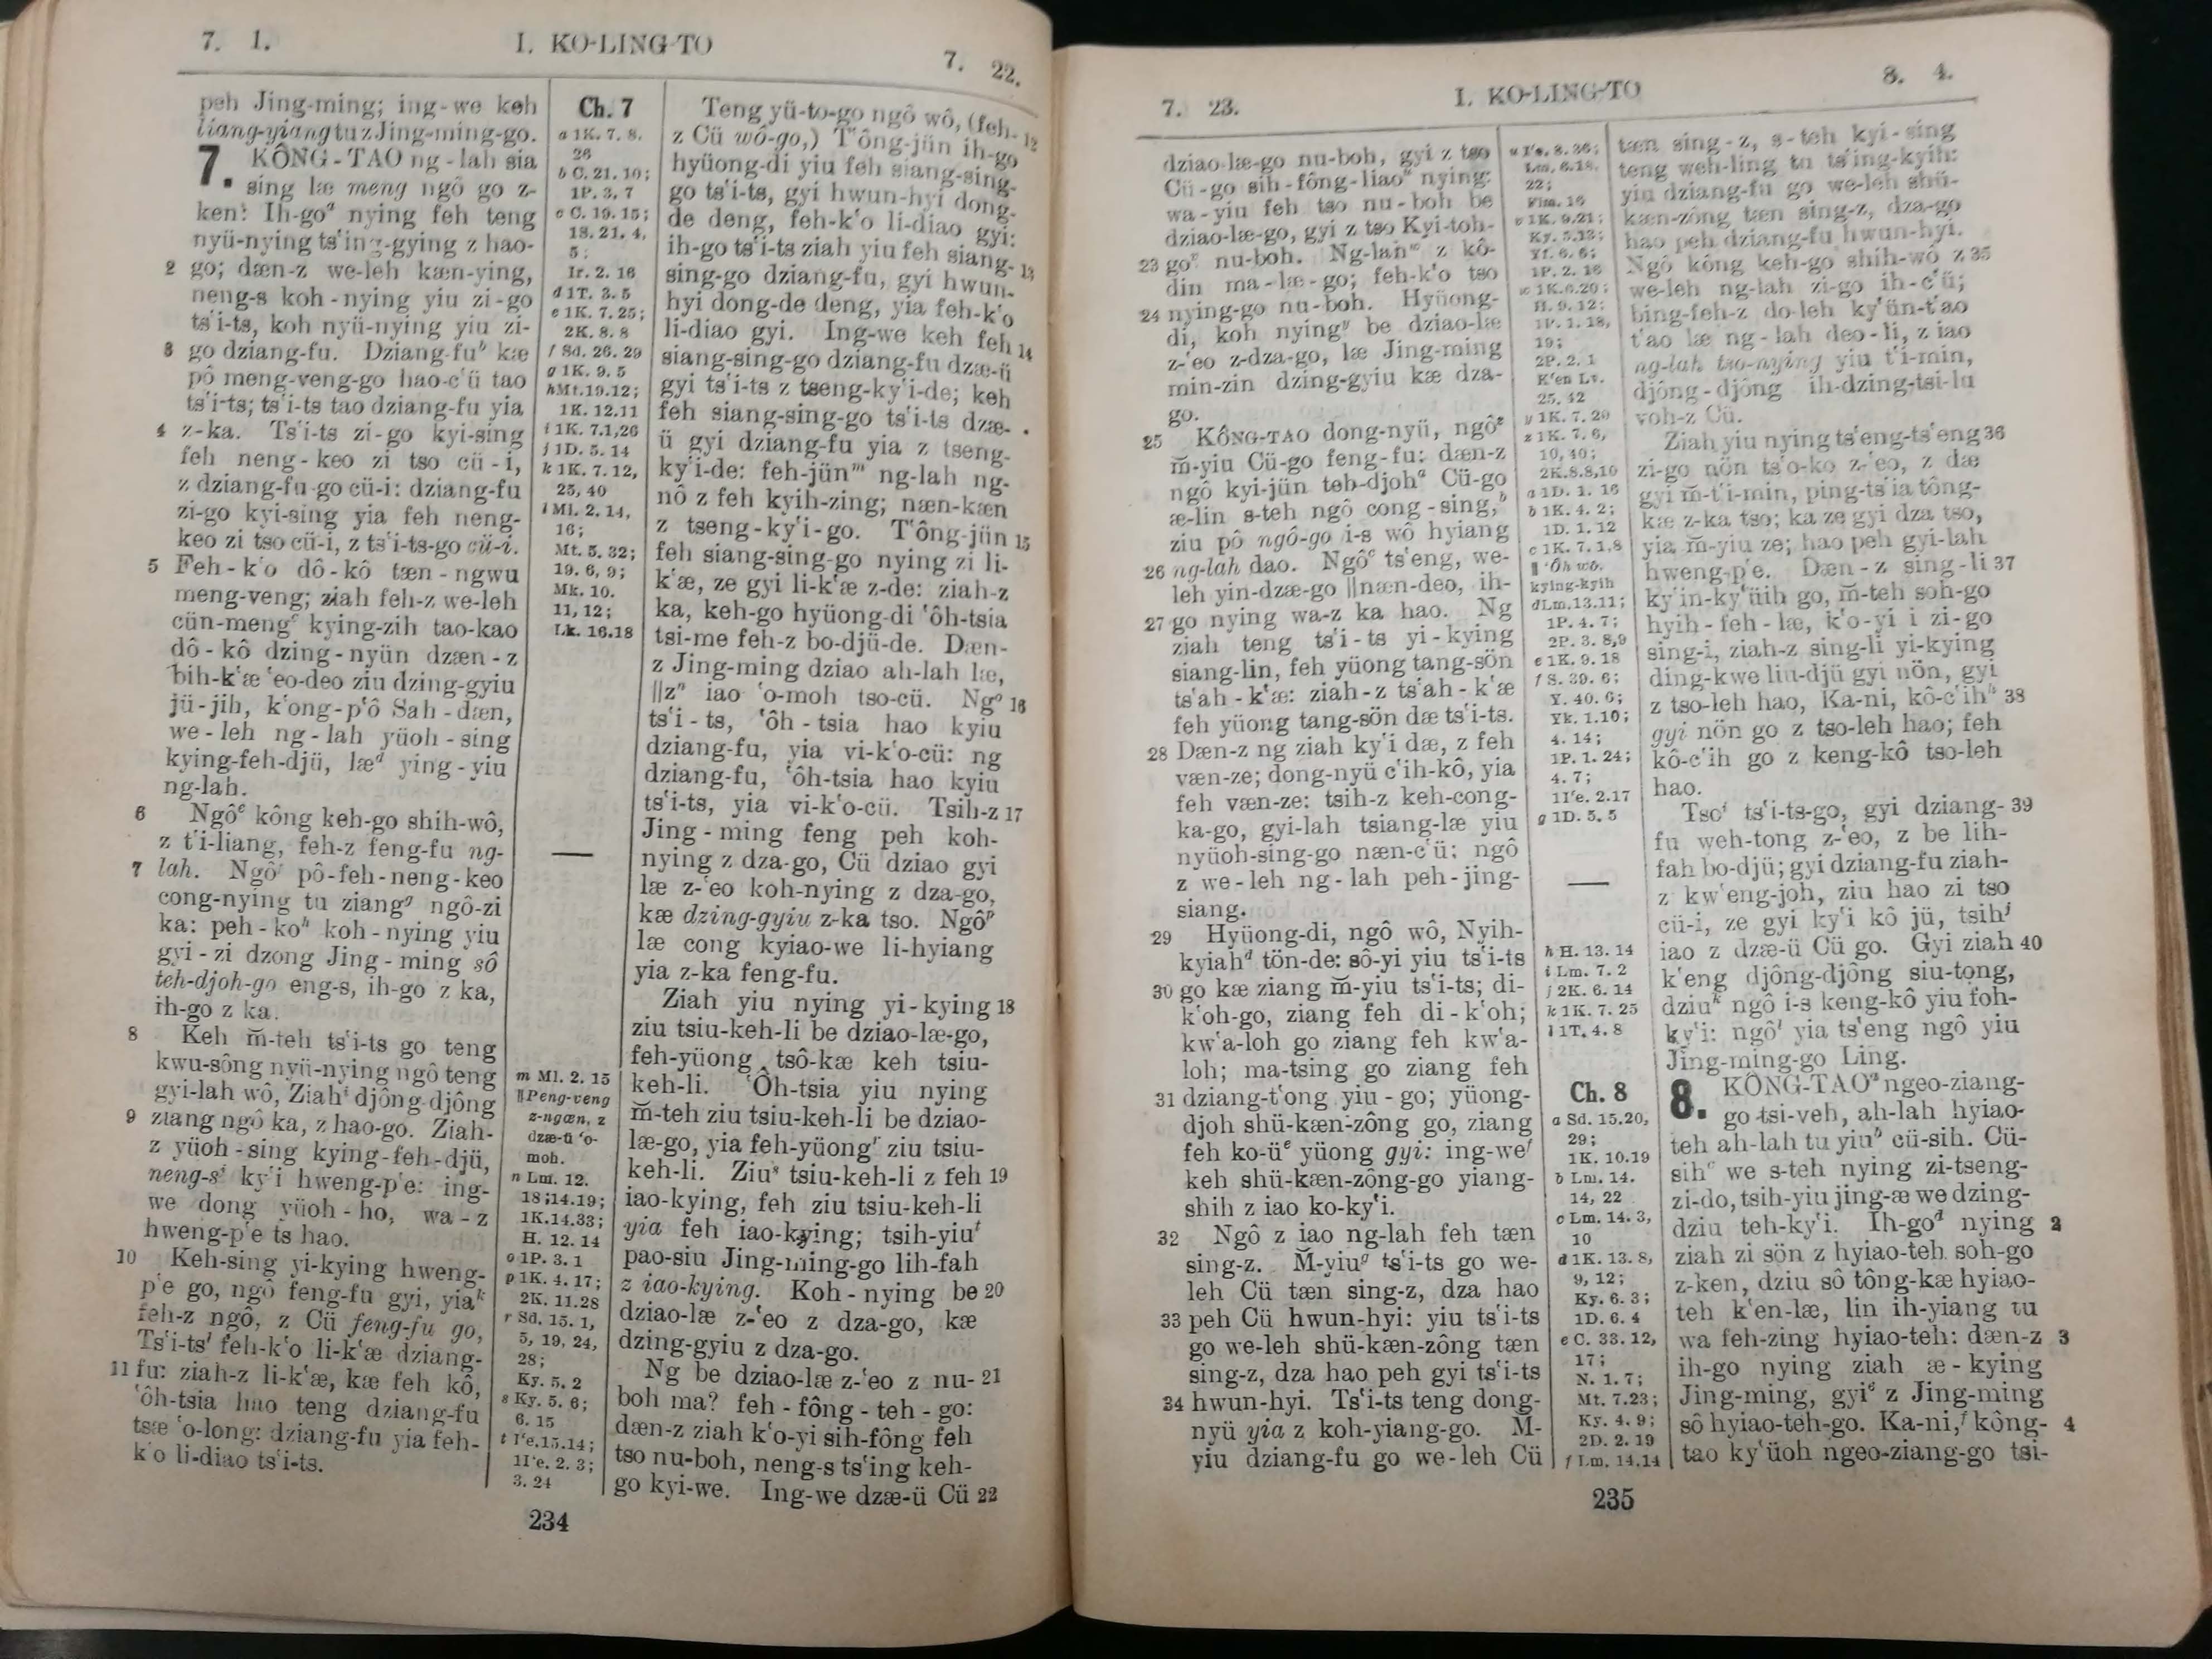 7. 1.
I. KO-LING-TO
7. 22.
peh Jing-ming; ing-we keh
liang-yiang tu z Jing-ming-go.
7. KÔNG-TAO ng-lah sia
sing læ meng ngô go z-
ken: Ih-goᵃ nying feh teng
nyü-nying ts'ing-gying z hao-
2 go; dæn-z we-leh kæn-ying,
neng-s koh-nying yiu zi-go
ts'i-ts, koh nyü-nying yiu zi-
3 go dziang-fu. Dziang-fuᵇ kæ
pô meng-veng-go hao-c'ü tao
ts'i-ts; ts'i-ts tao dziang-fu yia
4 z-ka. Ts'i-ts zi-go kyi-sing
feh neng-keo zi tso cü-i,
z dziang-fu-go cü-i: dziang-fu
zi-go kyi-sing yia feh neng-
keo zi tso cü-i, z ts'i-ts-go cü-i.
5 Feh-k'o dô-kô tæn-ngwu
meng-veng; ziah feh-z we-leh
cün-mengᶜ kying-zih tao-kao
dô-kô dzing-nyün dzæn-z
bih-k'æ 'eo-deo ziu dzing-gyiu
jü-jih, k'ong-p'ô Sah-dæn,
we-leh ng-lah yüoh-sing
kying-feh-djü, læᵈ ying-yiu
ng-lah.
6 Ngôᵉ kông keh-go shih-wô,
z t'i-liang, feh-z feng-fu ng-
7 lah. Ngôᶠ pô-feh-neng-keo
cong-nying tu ziangᵍ ngô-zi
ka: peh-koʰ koh-nying yiu
gyi-zi dzong Jing-ming sô
teh-djoh-go eng-s, ih-go z ka,
ih-go z ka.
8 Keh m̆-teh ts'i-ts go teng
kwu-sông nyü-nying ngô teng
gyi-lah wô, Ziahⁱ djông-djông
9 ziang ngô ka, z hao-go. Ziah-
z yüoh-sing kying-feh-djü,
neng-sʲ ky'i hweng-p'e: ing-
we dong yüoh-ho, wa-z
hweng-p'e ts hao.
10 Keh-sing yi-kying hweng-
p'e go, ngô feng-fu gyi, yiaᵏ
feh-z ngô, z Cü feng-fu go,
Ts'i-tsˡ feh-k'o li-k'æ dziang-
11 fu: ziah-z li-k'æ, kæ feh kô,
'ôh-tsia hao teng dziang-fu
tsæ 'o-long: dziang-fu yia feh-
k'o li-diao ts'i-ts.
Ch. 7
a 1K. 7. 8.
26
b C. 21. 10;
1P. 3. 7
c C. 19. 15;
18. 21. 4,
5;
Ir. 2. 16
d 1T. 3. 5
e 1K. 7. 25;
2K. 8. 8
f Sd. 26. 29
g 1K. 9. 5
h Mt. 19. 12;
1K. 12. 11
i 1K. 7.1,26
j 1D. 5. 14
k 1K. 7. 12,
25, 40
l Ml. 2. 14,
16;
Mt. 5. 32;
19. 6, 9;
Mk. 10.
11, 12;
Lk. 16.18
m Ml. 2. 15
‖Peng-veng
z-ngæn, z
dzæ-ü 'o-
moh.
n Lm. 12.
18;14.19;
1K.14.33;
H. 12. 14
o 1P. 3. 1
p 1K. 4. 17;
2K. 11.28
r Sd. 15. 1,
5, 19, 24,
28;
Ky. 5. 2
s Ky. 5. 6;
6. 15
t I'e.15.14;
1I'e. 2. 3;
3. 24
Teng yü-to-go ngô wô, (feh- 12
z Cü wô-go,) T'ông-jün ih-go
hyüong-di yiu feh siang-sing-
go ts'i-ts, gyi hwun-hyi dong-
de deng, feh-k'o li-diao gyi:
ih-go ts'i-ts ziah yiu feh siang- 13
sing-go dziang-fu, gyi hwun-
hyi dong-de deng, yia feh-k'o
li-diao gyi. Ing-we keh feh 14
siang-sing-go dziang-fu dzæ-ü
gyi ts'i-ts z tseng-ky'i-de; keh
feh siang-sing-go ts'i-ts dzæ-
ü gyi dziang-fu yia z tseng-
ky'i-de: feh-jünᵐ ng-lah ng-
nô z feh kyih-zing; næn-kæn
z tseng-ky'i-go. T'ông-jün 15
feh siang-sing-go nying zi li-
k'æ, ze gyi li-k'æ z-de: ziah-z
ka, keh-go hyüong-di 'ôh-tsia
tsi-me feh-z bo-djü-de. Dæn-
z Jing-ming dziao ah-lah læ,
‖zⁿ iao 'o-moh tso-cü. Ngᵒ 16
ts'i-ts, 'ôh-tsia hao kyiu
dziang-fu, yia vi-k'o-cü: ng
dziang-fu, 'ôh-tsia hao kyiu
ts'i-ts, yia vi-k'o-cü. Tsih-z 17
Jing-ming feng peh koh-
nying z dza-go, Cü dziao gyi
læ z-'eo koh-nying z dza-go,
kæ dzing-gyiu z-ka tso. Ngôᵖ
læ cong kyiao-we li-hyiang
yia z-ka feng-fu.
Ziah yiu nying yi-kying 18
ziu tsiu-keh-li be dziao-læ-go,
feh-yüong tsô-kæ keh tsiu-
keh-li. 'Ôh-tsia yiu nying
m̆-teh ziu tsiu-keh-li be dziao-
læ-go, yia feh-yüongʳ ziu tsiu-
keh-li. Ziuˢ tsiu-keh-li z feh 19
iao-kying, feh ziu tsiu-keh-li
yia feh iao-kying; tsih-yiuᵗ
pao-siu Jing-ming-go lih-fah
z iao-kying. Koh-nying be 20
dziao-læ z-'eo z dza-go, kæ
dzing-gyiu z dza-go.
Ng be dziao-læ z-'eo z nu- 21
boh ma? feh-fông-teh-go:
dæn-z ziah k'o-yi sih-fông feh
tso nu-boh, neng-s ts'ing keh-
go kyi-we. Ing-we dzæ-ü Cü 22
234
7. 23.
I. KO-LING-TO
8. 4.
dziao-læ-go nu-boh, gyi z tso
Cü-go sih-fông-liaoᵘ nying:
wa-yiu feh tso nu-boh be
dziao-læ-go, gyi z tso Kyi-toh-
23 goᵛ nu-boh. Ng-lahʷ z kô-
din ma-læ-go; feh-k'o tso
24 nying-go nu-boh. Hyüong-
di, koh nyingʸ be dziao-læ
z-'eo z-dza-go, læ Jing-ming
min-zin dzing-gyiu kæ dza-
go.
25 KÔNG-TAO dong-nyü, ngôᶻ
m̆-yiu Cü-go feng-fu: dæn-z
ngô kyi-jün teh-djohᵃ Cü-go
æ-lin s-teh ngô cong-sing,ᵇ
ziu pô ngô-go i-s wô hyiang
26 ng-lah dao. Ngôᶜ ts'eng, we-
leh yin-dzæ-go ‖næn-deo, ih-
27 go nying wa-z ka hao. Ng
ziah teng ts'i-ts yi-kying
siang-lin, feh yüong tang-sön
ts'ah-k'æ: ziah-z ts'ah-k'æ
feh yüong tang-sön dæ ts'i-ts.
28 Dæn-z ng ziah ky'i dæ, z feh
væn-ze; dong-nyü c'ih-kô, yia
feh væn-ze: tsih-z keh-cong-
ka-go, gyi-lah tsiang-læ yiu
nyüoh-sing-go næn-c'ü; ngô
z we-leh ng-lah peh-jing-
siang.
29 Hyüong-di, ngô wô, Nyih-
kyiahᵈ tön-de: sô-yi yiu ts'i-ts
30 go kæ ziang m̆-yiu ts'i-ts; di-
k'oh-go, ziang feh di-k'oh;
kw'a-loh go ziang feh kw'a-
loh; ma-tsing go ziang feh
31 dziang-t'ong yiu-go; yüong-
djoh shü-kæn-zông go, ziang
feh ko-üᵉ yüong gyi: ing-weᶠ
keh shü-kæn-zông-go yiang-
shih z iao ko-ky'i.
32 Ngô z iao ng-lah feh tæn
sing-z. M̆-yiuᵍ ts'i-ts go we-
leh Cü tæn sing-z, dza hao
33 peh Cü hwun-hyi: yiu ts'i-ts
go we-leh shü-kæn-zông tæn
sing-z, dza hao peh gyi ts'i-ts
34 hwun-hyi. Ts'i-ts teng dong-
nyü yia z koh-yiang-go. M̆-
yiu dziang-fu go we-leh Cü
22;
Fim. 16
v 1K. 9.21;
Ky. 5.13;
Yf. 6. 6;
1P. 2. 16
w 1K.6.20;
H. 9. 12;
1P. 1. 18,
19;
2P. 2. 1
K'en Lv.
25. 42
y 1K. 7. 20
z 1K. 7. 6,
10, 40;
2K.8.8,10
a 1D. 1. 16
b 1K. 4. 2;
1D. 1. 12
c 1K. 7.1,8
‖ 'Ôh wô,
kying-kyih
d Lm.13.11;
1P. 4. 7;
2P. 3. 8,9
e 1K. 9. 18
f S. 39. 6;
Y. 40. 6;
Yk. 1.10;
4. 14;
1P. 1. 24;
4. 7;
1I'e. 2.17
g 1D. 5. 5
h H. 13. 14
i Lm. 7. 2
j 2K. 6. 14
k 1K. 7. 25
l 1T. 4. 8
Ch. 8
a Sd. 15.20,
29;
1K. 10.19
b Lm. 14.
14, 22
c Lm. 14. 3,
10
d 1K. 13. 8,
9, 12;
Ky. 6. 3;
1D. 6. 4
e C. 33. 12,
17;
N. 1. 7;
Mt. 7.23;
Ky. 4. 9;
2D. 2. 19
f Lm. 14.14
tæn sing-z, s-teh kyi-sing
teng weh-ling tu ts'ing-kyih:
yiu dziang-fu go we-leh shü-
kæn-zông tæn sing-z, dza-go
hao peh dziang-fu hwun-hyi.
Ngô kông keh-go shih-wô z 35
we-leh ng-lah zi-go ih-c'ü;
bing-feh-z do-leh ky'ün-t'ao
t'ao læ ng-lah deo-li, z iao
ng-lah tso-nying yiu t'i-min,
djông-djông ih-dzing-tsi-lu
voh-z Cü.
Ziah yiu nying ts'eng-ts'eng 36
zi-go nön ts'o-ko z-'eo, z dæ
gyi m̆-t'i-min, ping-ts'ia tông-
kæ z-ka tso; ka ze gyi dza tso,
yia m̆-yiu ze; hao peh gyi-lah
hweng-p'e. Dæn-z sing-li 37
ky'in-ky'üih go, m̆-teh soh-go
hyih-feh-læ, k'o-yi i zi-go
sing-i, ziah-z sing-li yi-kying
ding-kwe liu-djü gyi nön, gyi
z tso-leh hao, Ka-ni, kô-c'ihʰ 38
gyi nön go z tso-leh hao; feh
kô-c'ih go z keng-kô tso-leh
hao.
Tsoⁱ ts'i-ts-go, gyi dziang- 39
fu weh-tong z-'eo, z be lih-
fah bo-djü; gyi dziang-fu ziah-
z kw'eng-joh, ziu hao zi tso
cü-i, ze gyi ky'i kô jü, tsihʲ
iao z dzæ-ü Cü go. Gyi ziah 40
k'eng djông-djông siu-tong,
dziuᵏ ngô i-s keng-kô yiu foh-
ky'i: ngôˡ yia ts'eng ngô yiu
Jing-ming-go Ling.
8. KÔNG-TAOᵃ ngeo-ziang-
go tsi-veh, ah-lah hyiao-
teh ah-lah tu yiuᵇ cü-sih. Cü-
sihᶜ we s-teh nying zi-tseng-
zi-do, tsih-yiu jing-æ we dzing-
dziu teh-ky'i. Ih-goᵈ nying 2
ziah zi sön z hyiao-teh soh-go
z-ken, dziu sô tông-kæ hyiao-
teh k'en-læ, lin ih-yiang tu
wa feh-zing hyiao-teh: dæn-z 3
ih-go nying ziah æ-kying
Jing-ming, gyiᵉ z Jing-ming
sô hyiao-teh-go. Ka-ni,ᶠ kông- 4
tao ky'üoh ngeo-ziang-go tsi-
235